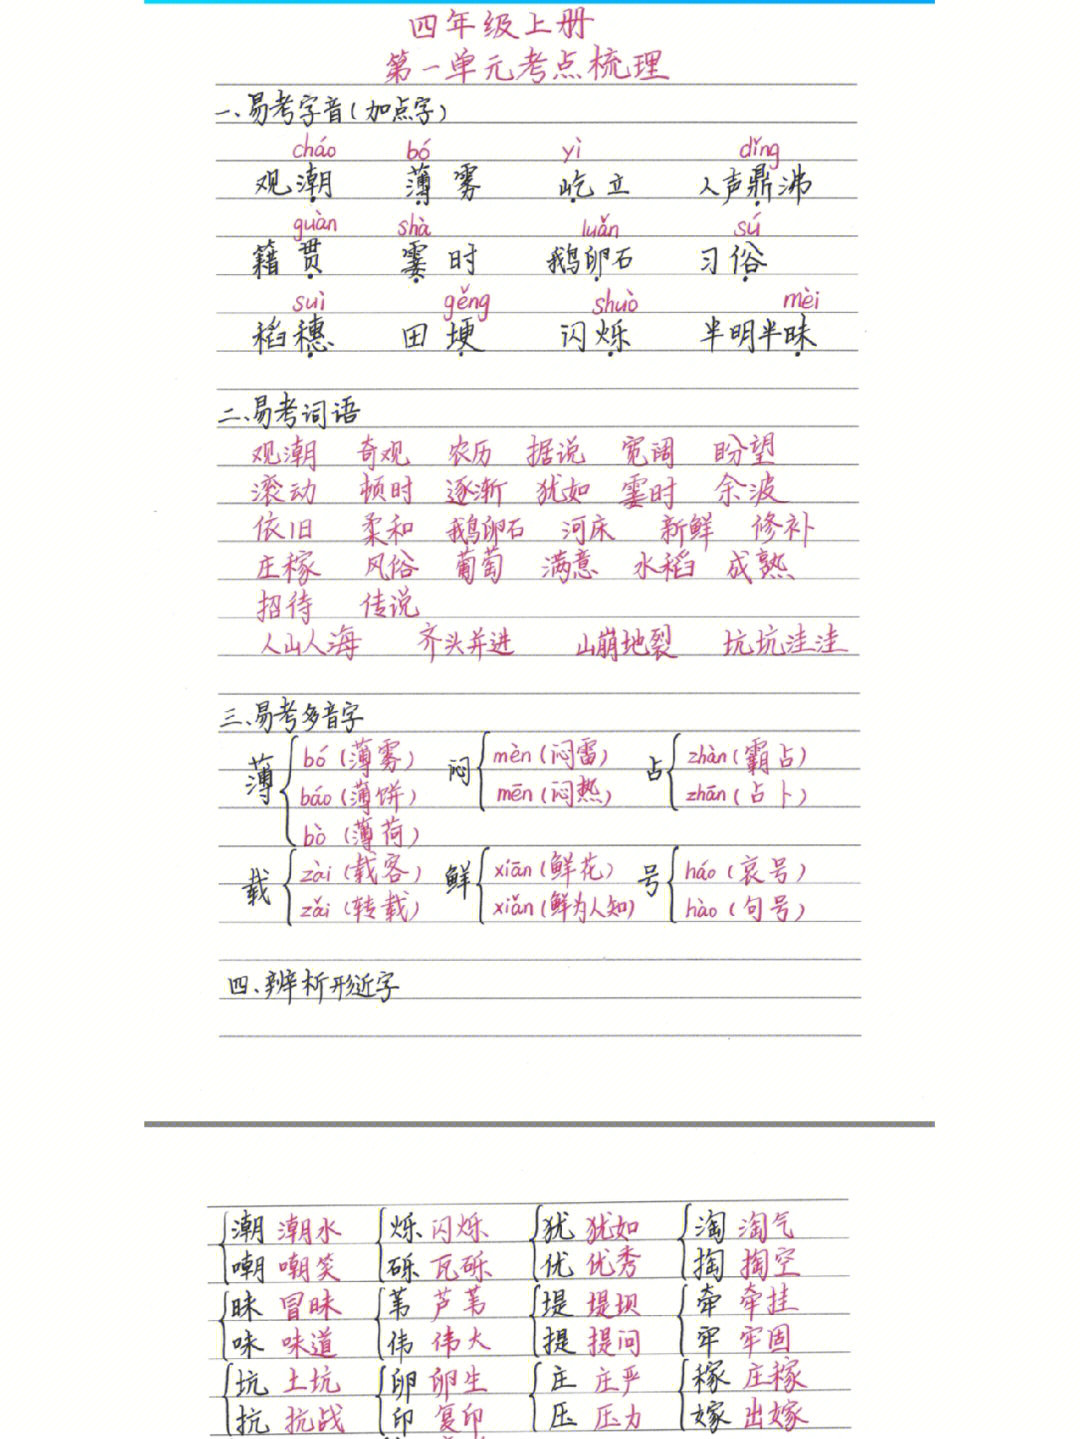 四年级上册
第一单元考点梳理
一、易考字音(加点字)
cháo bó yì dǐng
观潮 薄雾 屹立 人声鼎沸
guàn shà luǎn sú
籍贯 霎时 鹅卵石 习俗
suì gěng shuò mèi
稻穗 田埂 闪烁 半明半昧
二、易考词语
观潮 奇观 农历 据说 宽阔 盼望
滚动 顿时 逐渐 犹如 霎时 余波
依旧 柔和 鹅卵石 河床 新鲜 修补
庄稼 风俗 葡萄 满意 水稻 成熟
招待 传说
人山人海 齐头并进 山崩地裂 坑坑洼洼
三、易考多音字
薄 bó(薄雾) 闷 mèn(闷雷) 占 zhàn(霸占)
báo(薄饼) mēn(闷热) zhān(占卜)
bò(薄荷)
载 zài(载客) 鲜 xiān(鲜花) 号 háo(哀号)
zǎi(转载) xiǎn(鲜为人知) hào(句号)
四、辨析形近字
潮 潮水 烁 闪烁 犹 犹如 淘 淘气
嘲 嘲笑 砾 瓦砾 优 优秀 掏 掏空
昧 冒昧 苇 芦苇 堤 堤坝 牵 牵挂
味 味道 伟 伟大 提 提问 牢 牢固
坑 土坑 卵 卵生 庄 庄严 稼 庄稼
抗 抗战 印 复印 压 压力 嫁 出嫁